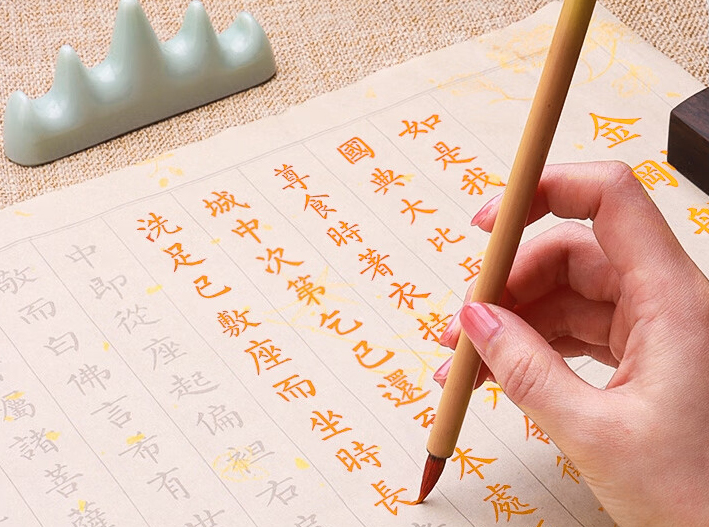 金
如是我
國典大比
尊食時著衣持
城中次第乞已還至本處
洗足已敷座而坐時長
中即從座起偏袒右
敬而白佛言希有世
屬諸菩薩